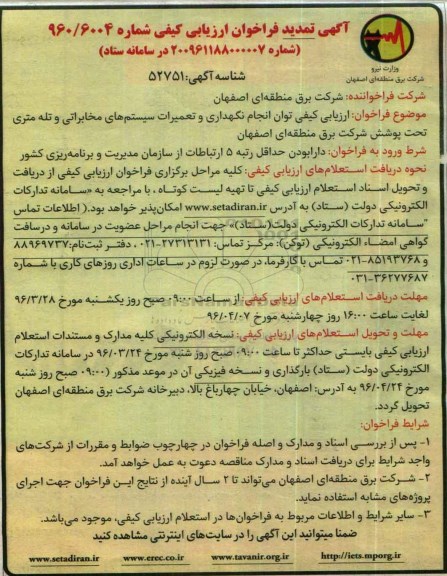 آگهی تمدید فراخوان ارزیابی کیفی شماره ۹۶۰/۶۰۰۴
(شماره ۲۰۰۹۶۱۱۸۸۰۰۰۰۰۷ در سامانه ستاد)
وزارت نیرو
شرکت برق منطقه‌ای اصفهان
شناسه آگهی: ۵۲۷۵۱
شرکت فراخواننده: شرکت برق منطقه‌ای اصفهان
موضوع فراخوان: ارزیابی کیفی توان انجام نگهداری و تعمیرات سیستم‌های مخابراتی و تله متری
تحت پوشش شرکت برق منطقه‌ای اصفهان
شرط ورود به فراخوان: دارابودن حداقل رتبه ۵ ارتباطات از سازمان مدیریت و برنامه‌ریزی کشور
نحوه دریافت استعلام‌های ارزیابی کیفی: کلیه مراحل برگزاری فراخوان ارزیابی کیفی از دریافت
و تحویل اسناد استعلام ارزیابی کیفی تا تهیه لیست کوتاه، با مراجعه به «سامانه تدارکات
الکترونیکی دولت (ستاد) به آدرس www.setadiran.ir امکان‌پذیر خواهد بود.( اطلاعات تماس
"سامانه تدارکات الکترونیکی دولت(ستاد)» جهت انجام مراحل عضویت در سامانه و دریافت
گواهی امضاء الکترونیکی (توکن): مرکز تماس: ۲۷۳۱۳۱۳۱-۰۲۱، دفتر ثبت‌نام: ۸۸۹۶۹۷۳۷
و ۸۵۱۹۳۷۶۸-۰۲۱ تماس با کارفرما، در صورت لزوم در ساعات اداری روزهای کاری با شماره
۳۶۲۷۷۶۸۷-۰۳۱
مهلت دریافت استعلام‌های ارزیابی کیفی: از ساعت ۰۹:۰۰ صبح روز یکشنبه مورخ ۹۶/۳/۲۸
لغایت ساعت ۱۶:۰۰ روز چهارشنبه مورخ ۹۶/۰۴/۰۷
مهلت و تحویل استعلام‌های ارزیابی کیفی: نسخه الکترونیکی کلیه مدارک و مستندات استعلام
ارزیابی کیفی بایستی حداکثر تا ساعت ۰۹:۰۰ صبح روز شنبه مورخ ۹۶/۰۳/۲۴ در سامانه تدارکات
الکترونیکی دولت (ستاد) بارگذاری و نسخه فیزیکی آن در موعد مذکور (۰۹:۰۰ صبح روز شنبه
مورخ ۹۶/۰۴/۲۴ به آدرس: اصفهان، خیابان چهارباغ بالا، دبیرخانه شرکت برق منطقه‌ای اصفهان
تحویل گردد.
شرایط فراخوان:
۱- پس از بررسی اسناد و مدارک و اصله فراخوان در چهارچوب ضوابط و مقررات از شرکت‌های
واجد شرایط برای دریافت اسناد و مدارک مناقصه دعوت به عمل خواهد آمد.
۲- شرکت برق منطقه‌ای اصفهان می‌تواند تا ۲ سال آینده از نتایج این فراخوان جهت اجرای
پروژه‌های مشابه استفاده نماید.
۳- سایر شرایط و اطلاعات مربوط به فراخوان‌ها در استعلام ارزیابی کیفی، موجود می‌باشد.
ضمنا میتوانید این آگهی را در سایت‌های اینترنتی مشاهده کنید
www.setadiran.ir www.erec.co.ir www.tavanir.org.ir http://iets.mporg.ir